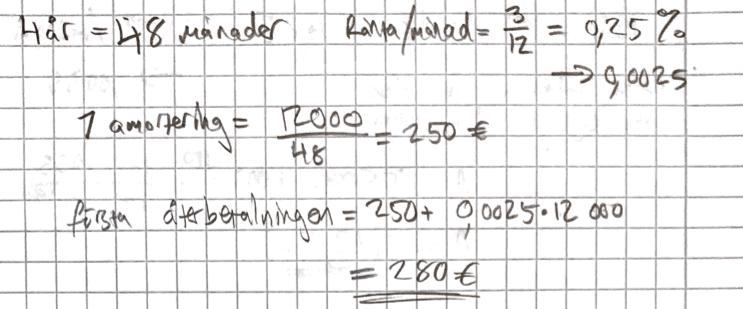 4 år = 48 månader Ränta/månad = 3/12 = 0,25 %
→ 0,0025
1 amortering = 12000/48 = 250 €
första återbetalningen = 250 + 0,0025 · 12 000
= 280 €